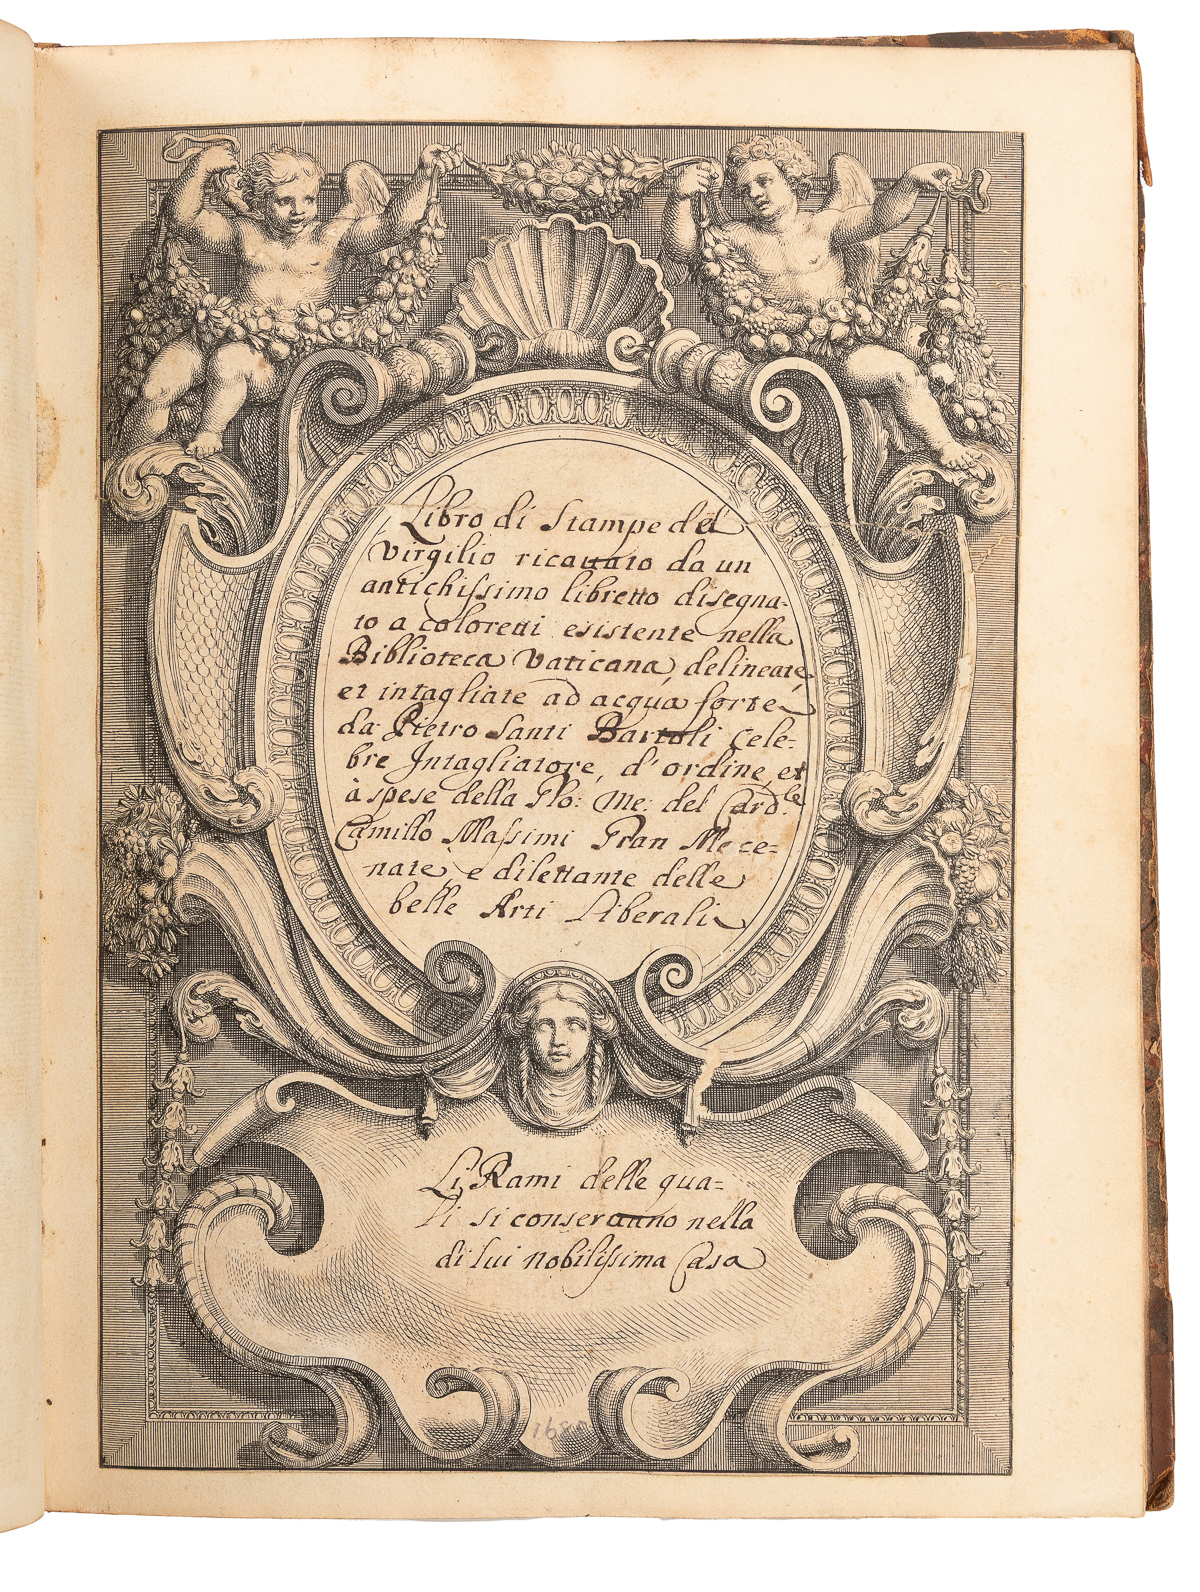 Libro di Stampe del
Virgilio ricavato da un
antichissimo libretto disegna-
to a coloretti esistente nella
Biblioteca Vaticana, delineate,
et intagliate ad acqua forte
da Pietro Santi Bartoli Cele-
bre Intagliatore, d'ordine, et
à spese della Glo: Me: del Card.le
Camillo Massimi Gran Mece-
nate, e dilettante delle
belle Arti Liberali
Li Rami delle qua-
li si conservano nella
di lui nobilissima Casa